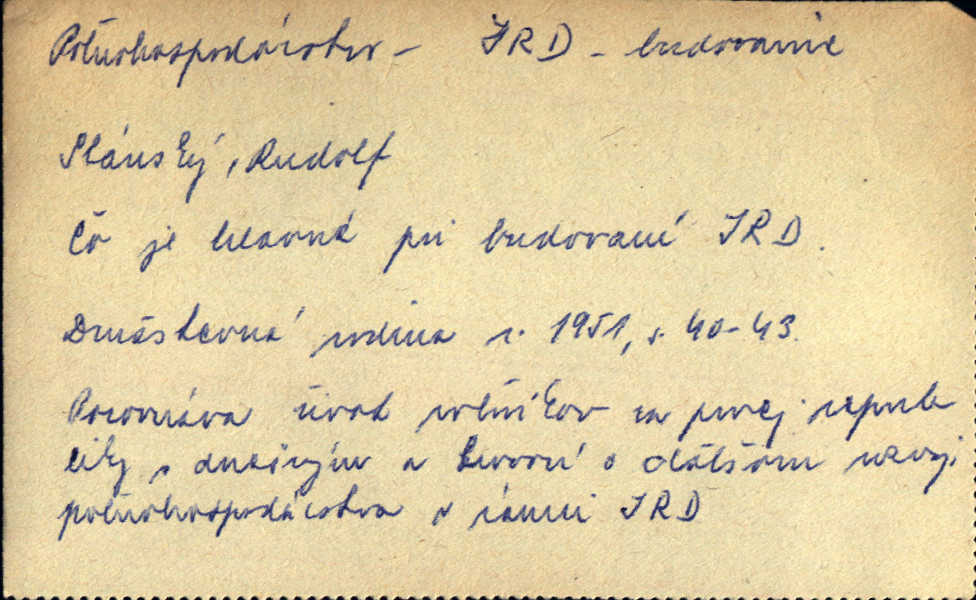 Poľnohospodárstvo - JRD - budovanie
Slánský, Rudolf
Čo je hlavné pri budovaní JRD.
Družstevná rodina r. 1951, s. 40-43.
Porovnáva život roľníkov za prvej republi
liky s dnešným a hovorí o ďalšom rozvoji
poľnohospodárstva v rámci JRD